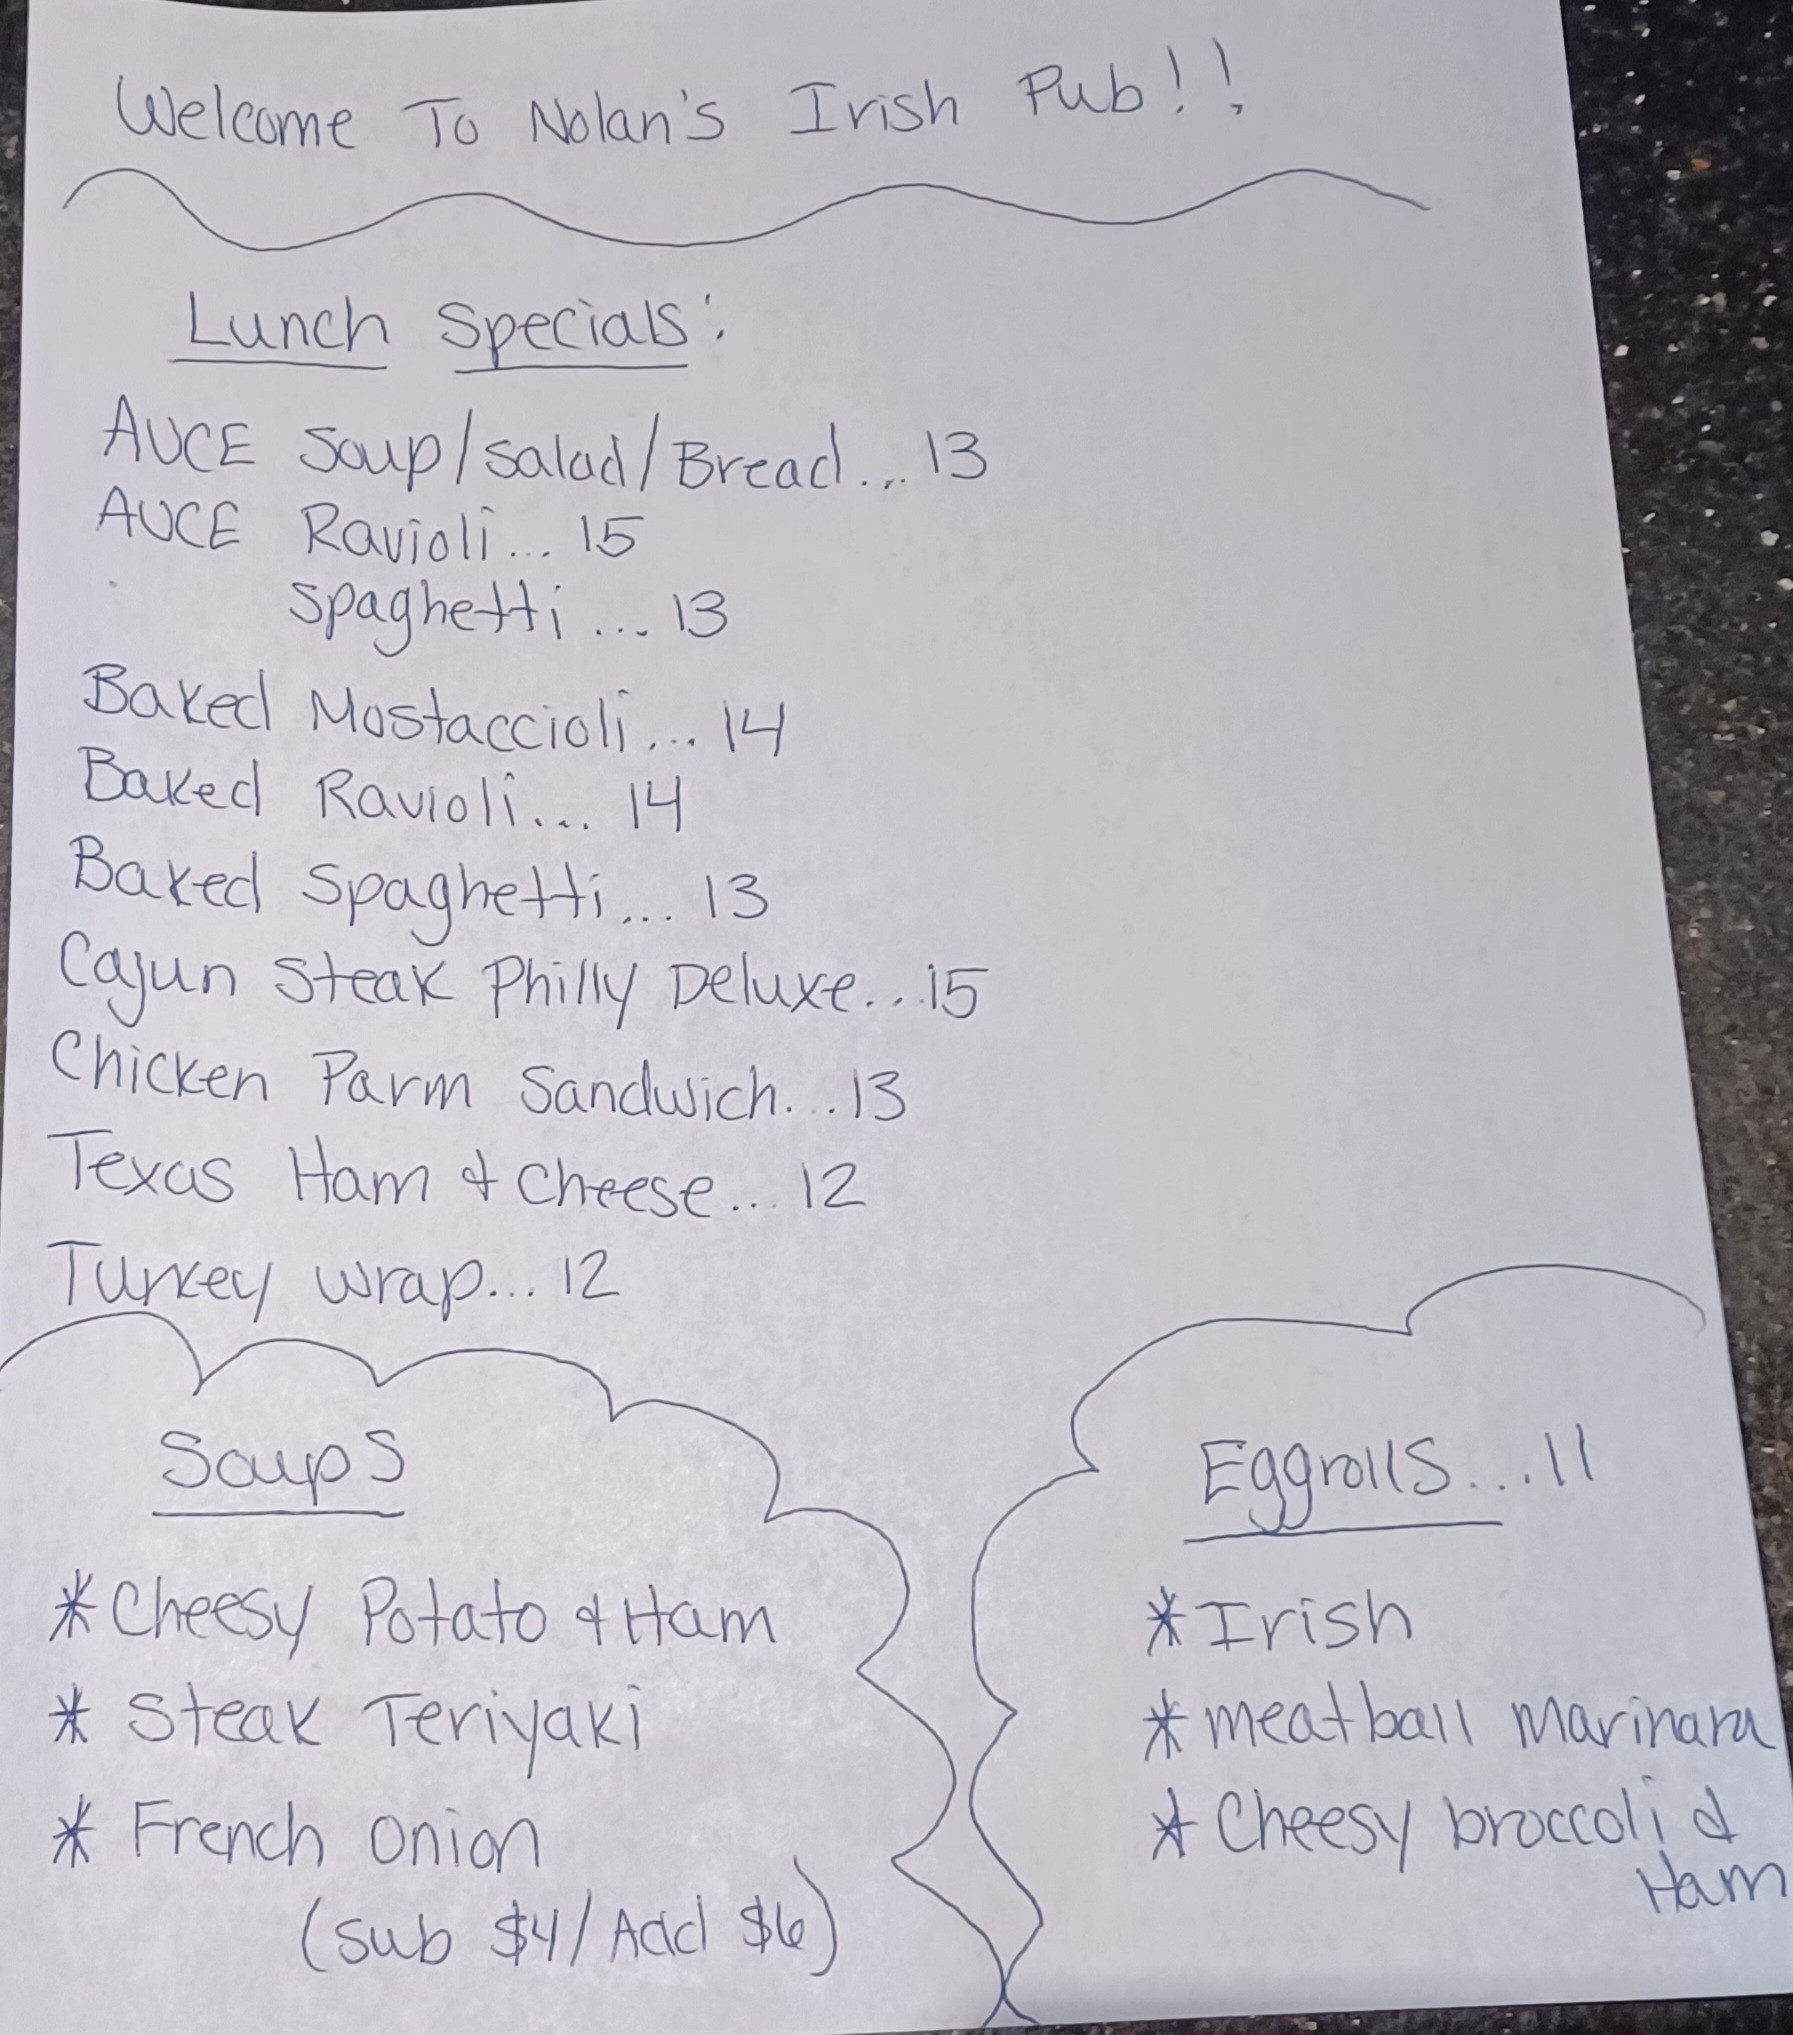 Welcome To Nolan's Irish Pub!!
Lunch Specials:
AUCE Soup/salad/Bread... 13
AUCE Ravioli... 15
spaghetti... 13
Baked Mostaccioli... 14
Baked Ravioli... 14
Baked Spaghetti... 13
Cajun Steak Philly Deluxe... 15
Chicken Parm Sandwich... 13
Texas Ham & Cheese... 12
Turkey wrap... 12
Soups
*Cheesy Potato & Ham
* Steak Teriyaki
* French Onion
(sub $4/Add $6)
Eggrolls...11
*Irish
*meatball marinara
*Cheesy broccoli &
Ham